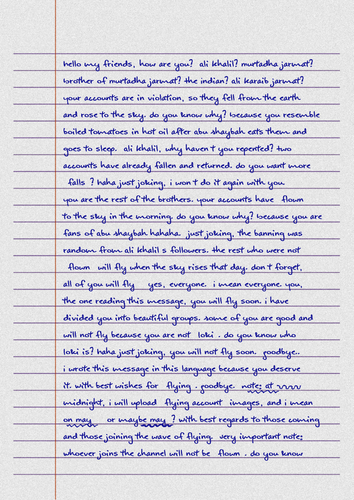 hello my friends, how are you? ali khalil? murtadha jarmat?
brother of murtadha jarmat? the indian? ali karaib jarmat?
your accounts are in violation, so they fell from the earth
and rose to the sky. do you know why? because you resemble
boiled tomatoes in hot oil after abu shaybah eats them and
goes to sleep. ali khalil, why haven t you repented? two
accounts have already fallen and returned. do you want more
falls ? haha just joking, i won t do it again with you
you are the rest of the brothers. your accounts have flown
to the sky in the morning. do you know why? because you are
fans of abu shaybah hahaha. just joking, the banning was
random from ali khalil s followers. the rest who were not
flown will fly when the sky rises that day. don t forget,
all of you will fly yes, everyone. i mean everyone. you,
the one reading this message, you will fly soon. i have
divided you into beautiful groups. some of you are good and
will not fly because you are not loki . do you know who
loki is? haha just joking, you will not fly soon. goodbye..
i wrote this message in this language because you deserve
it. with best wishes for flying . goodbye. note: at
midnight, i will upload flying account images, and i mean
on may or maybe may ? with best regards to those coming
and those joining the wave of flying. very important note:
whoever joins the channel will not be flown . do you know